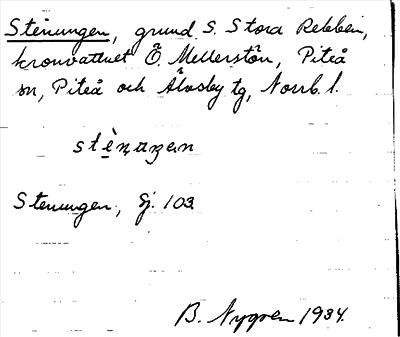 Stenungen, grund S. Stora Rebben,
kronvattnet Ö. Mellerstön, Piteå
sn, Piteå och Älvsby tg, Norrb. l.
stènuŋen
Stenungen, Sj. 103
B. Nygren 1934.